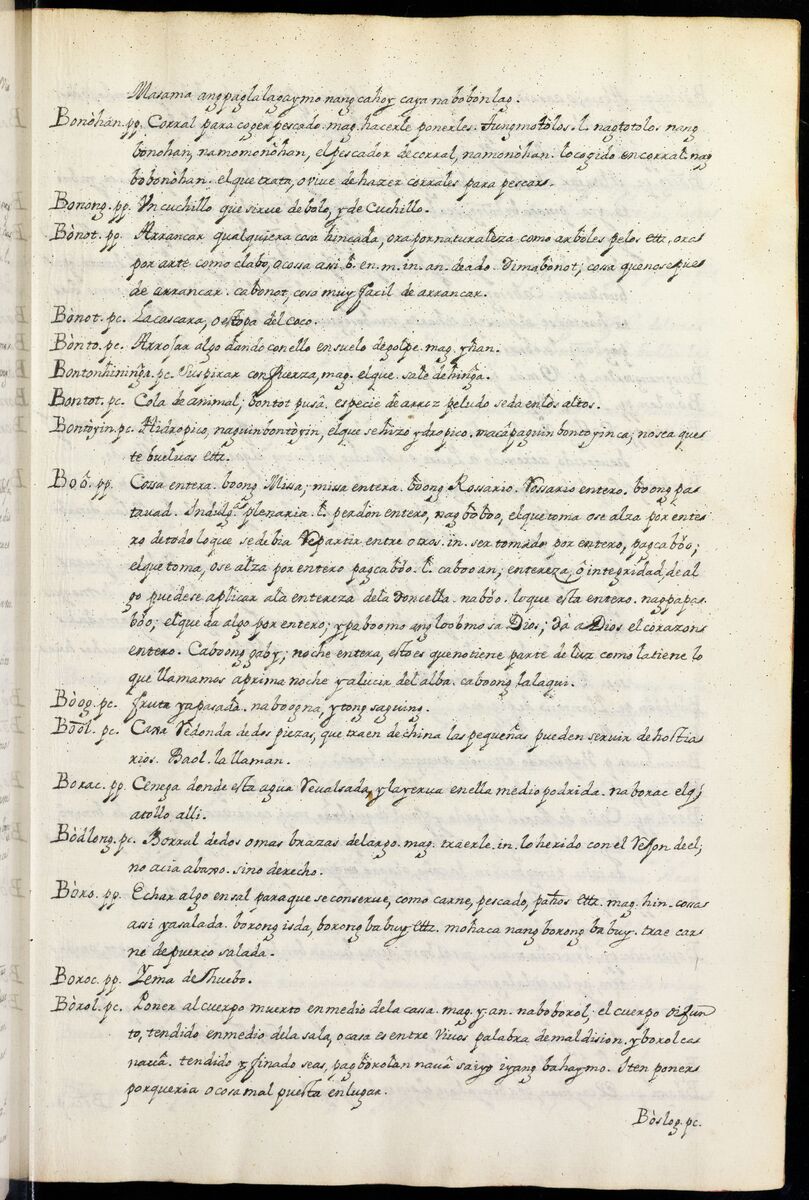 Masama ang paglalagay mo nang cahoy caya nabobonlag.
Bonòhan. pp. Corral para coger pescado. mag. hacerle ponerles. Tungmotòlos. l. nagtotolos nang
bonohan, namomonòhan, el pescador de corral, namonòhan. lo cogido en corral. nag
bobonòhan. el que trata, o viue de hazer corrales para pescar.
Bonong. pp. Vn cuchillo que sirue de bolo, y de Cuchillo.
Bònot. pp. Arrancar qualquiera cosa hincada, ora por naturaleza como arboles pelos ettz. ora
por arte como clabo, o cossa assi. b. en. m. in. an. deado. Dimabonot; cosa que no se pue
de arrancar. cabonot, cosa muy facil de arrancar.
Bonot. pc. La cascara, o estopa del coco.
Bònto. pc. Arrojar algo dando con ello en suelo de golpe. mag. y han.
Bontonhiningа. pc. Suspirar con fuerza, mag. el que. sale de hinga.
Bontot. pc. Cola de animal; bontot pusâ. especie de arroz peludo se da en los altos.
Bontòyin. pc. Hidropico, naguinbontòyin, el que se hizo ydropico. macâpaguin bontoyin ca; no sea que
te bueluas ettz.
Boô. pp. Cossa entera. boong Missa; missa entera. boong Rossario. Rossario entero. boong pa
tauad. Indulgª plenaria. l. perdon entero, nag boboo, el que toma o se alza por ente
ro de todo lo que se debia Repartir entre otros. in. ser tomado por entero, pagcabôo;
el que toma, o se alza por entero pagcabôo. l. cabooan; entereza, o integridad, de al
go puedese aplicar a la entereza de la doncella. nabôo. lo que esta entero. nagpapa
bôo; el que da algo por entero; ypaboomo ang loob mo sa Dios; dà a Dios el corazon
entero. Caboong gaby; noche entera, esto es que no tiene parte de luz como la tiene lo
que llamamos a prima noche y a lucir del alba. caboong lalaqui.
Bòog. pc. fruta ya pasada. naboogna, ytong saguing.
Boòl. pc. Caxa Redonda de dos piezas, que traen de china las pequeñas pueden seruir de hostia
rios. Baol. la llaman.
Borac. pp. Cenega donde esta agua Reualsada, y la yerua en ella medio podrida. naborac el q̃
atollo alli.
Bòdlong. pc. Borral de dos o mas brazas de largo. mag. traerle. in. lo herido con el Rejon decli
no acia abaxo. sino derecho.
Bòro. pp. Echar algo en sal para que se conserue, como carne, pescado, paños ettz. mag. hin. cossa
assi ya salada. borong isda, borong babuy ettz. mohaca nang borong babuy. trae car
ne de puerco salada.
Boroc. pp. Yema de huebo.
Bòrol. pc. Poner al cuerpo muerto en medio de la cassa. mag. y an. naboborol. el cuerpo difun
to, tendido en medio de la sala, o casa es entre Viuos palabra de maldision. yborol cas
nauâ. tendido y finado seas, pagborolan nauâ saiyo iyang bahay mo. Iten poner
porqueria o cosa mal puesta en lugar.
Bòslog. pc.